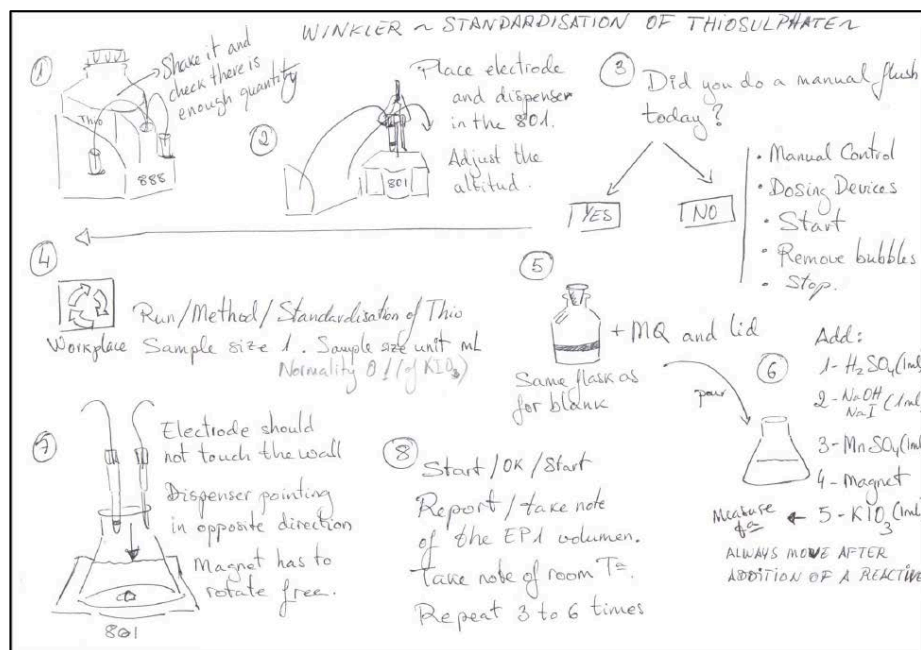 WINKLER ~ STANDARDISATION OF THIOSULPHATE ~
1
Shake it and
check there is
enough quantity
Thio
888
2
Place electrode
and dispenser
in the 801.
Adjust the
altitud.
801
3
Did you do a manual flush
today?
YES
NO
• Manual Control
• Dosing Devices
• Start
• Remove bubbles
• Stop.
4
Run/Method/Standardisation of Thio
Workplace Sample size 1. Sample size unit mL
Normality 0.1 (of KIO3)
5
+ MQ and lid
Same flask as
for blank
pour
6
Add:
1- H2SO4 (1ml)
2- NaOH
NaI (1ml
3- MnSO4 (1ml)
4- Magnet
Measure
← 5- KIO3 (1ml)
ALWAYS MOVE AFTER
ADDITION OF A REACTIVE
7
Electrode should
not touch the wall
Dispenser pointing
in opposite direction
Magnet has to
rotate free.
801
8
Start/OK/Start
Report/take note
of the EP1 volumen.
Take note of room Tª.
Repeat 3 to 6 times